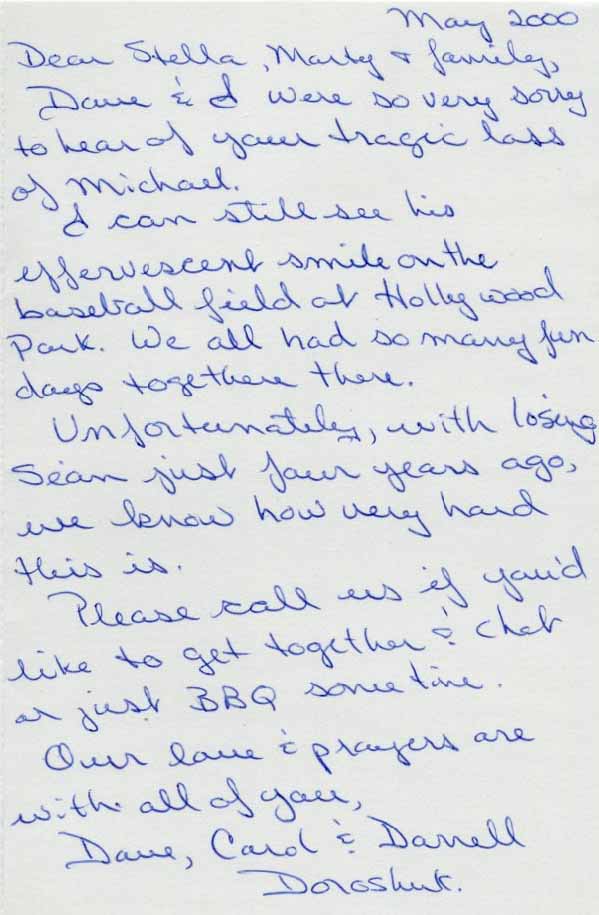 May 2000
Dear Stella, Marty & family,
Dave & I were so very sorry
to hear of your tragic loss
of Michael.
I can still see his
effervescent smile on the
baseball field at Hollywood
Park. We all had so many fun
days together there.
Unfortunately, with losing
Sean just four years ago,
we know how very hard
this is.
Please call us if you'd
like to get together & chat
or just BBQ sometime.
Our love & prayers are
with all of you,
Dave, Carol & Darrell
Doroshuk.